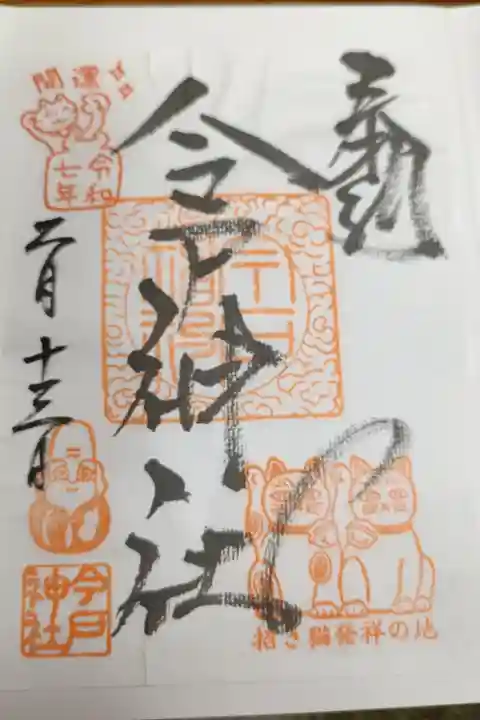 今戸神社
開運
令和
七年
二月十三日
今戸
神社
招き猫発祥の地